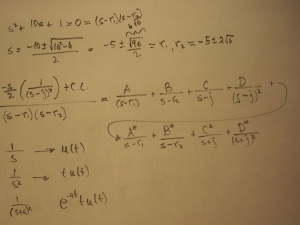 s² + 10s + 1 = 0 = (s-r₁)(s-r₂)
4√6
s = (-10 ± √(10²-4))/2 = (-5 ± √96/2) = r₁, r₂ = -5 ± 2√6
(-s/2 (1/(s-j)²) + c.c.)/((s-r₁)(s-r₂)) = A/(s-r₁) + B/(s-r₂) + C/(s-j) + D/(s-j)² +
A*/(s-r₁) + B*/(s-r₂) + C*/(s+j) + D*/(s+j)²
1/s → u(t)
1/s² → t u(t)
1/(s+a)² e^(-at) t u(t)